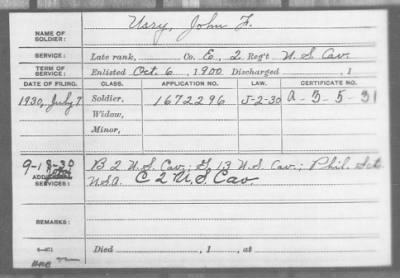 Usry, John F.
NAME OF
SOLDIER:
SERVICE: Late rank, Co. E, 2 Reg't U.S Cav.
TERM OF
SERVICE: Enlisted Oct. 6, 1900 Discharged , 1
DATE OF FILING. CLASS. APPLICATION NO. LAW. CERTIFICATE NO.
1930, July 7. Soldier, 1672296 J-2-30 A-5-5-31
Widow,
Minor,
9-18-30 B 2 U.S. Cav.; G, 13 U.S Cav.; Phil. Sct.
SERVICES: U.S.A. C 2 U.S. Cav.
REMARKS:
Died , 1 , at